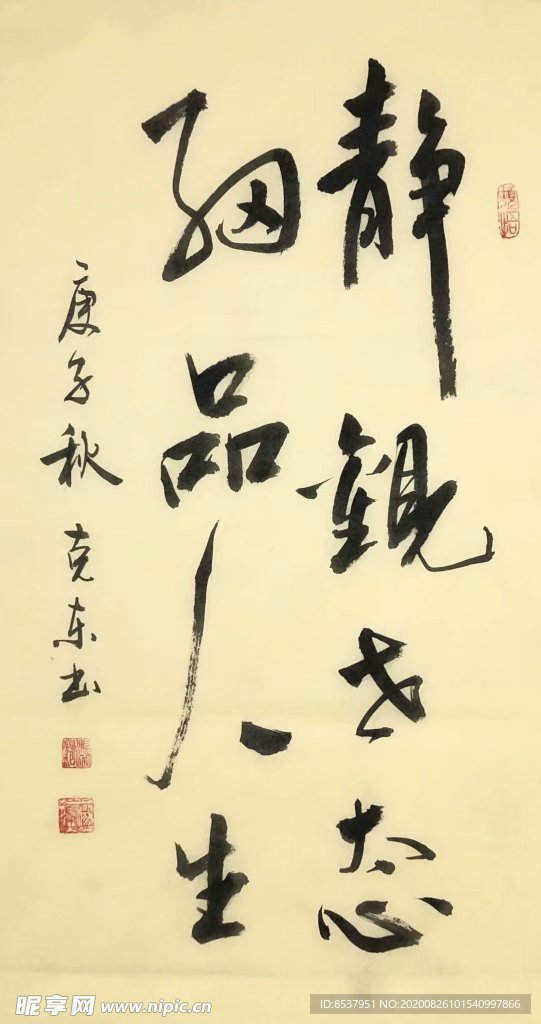 静觀世态
细品人生
庚子秋 克东书
昵享网 www.nipic.cn
ID:8537951 NO:20200826101540997866